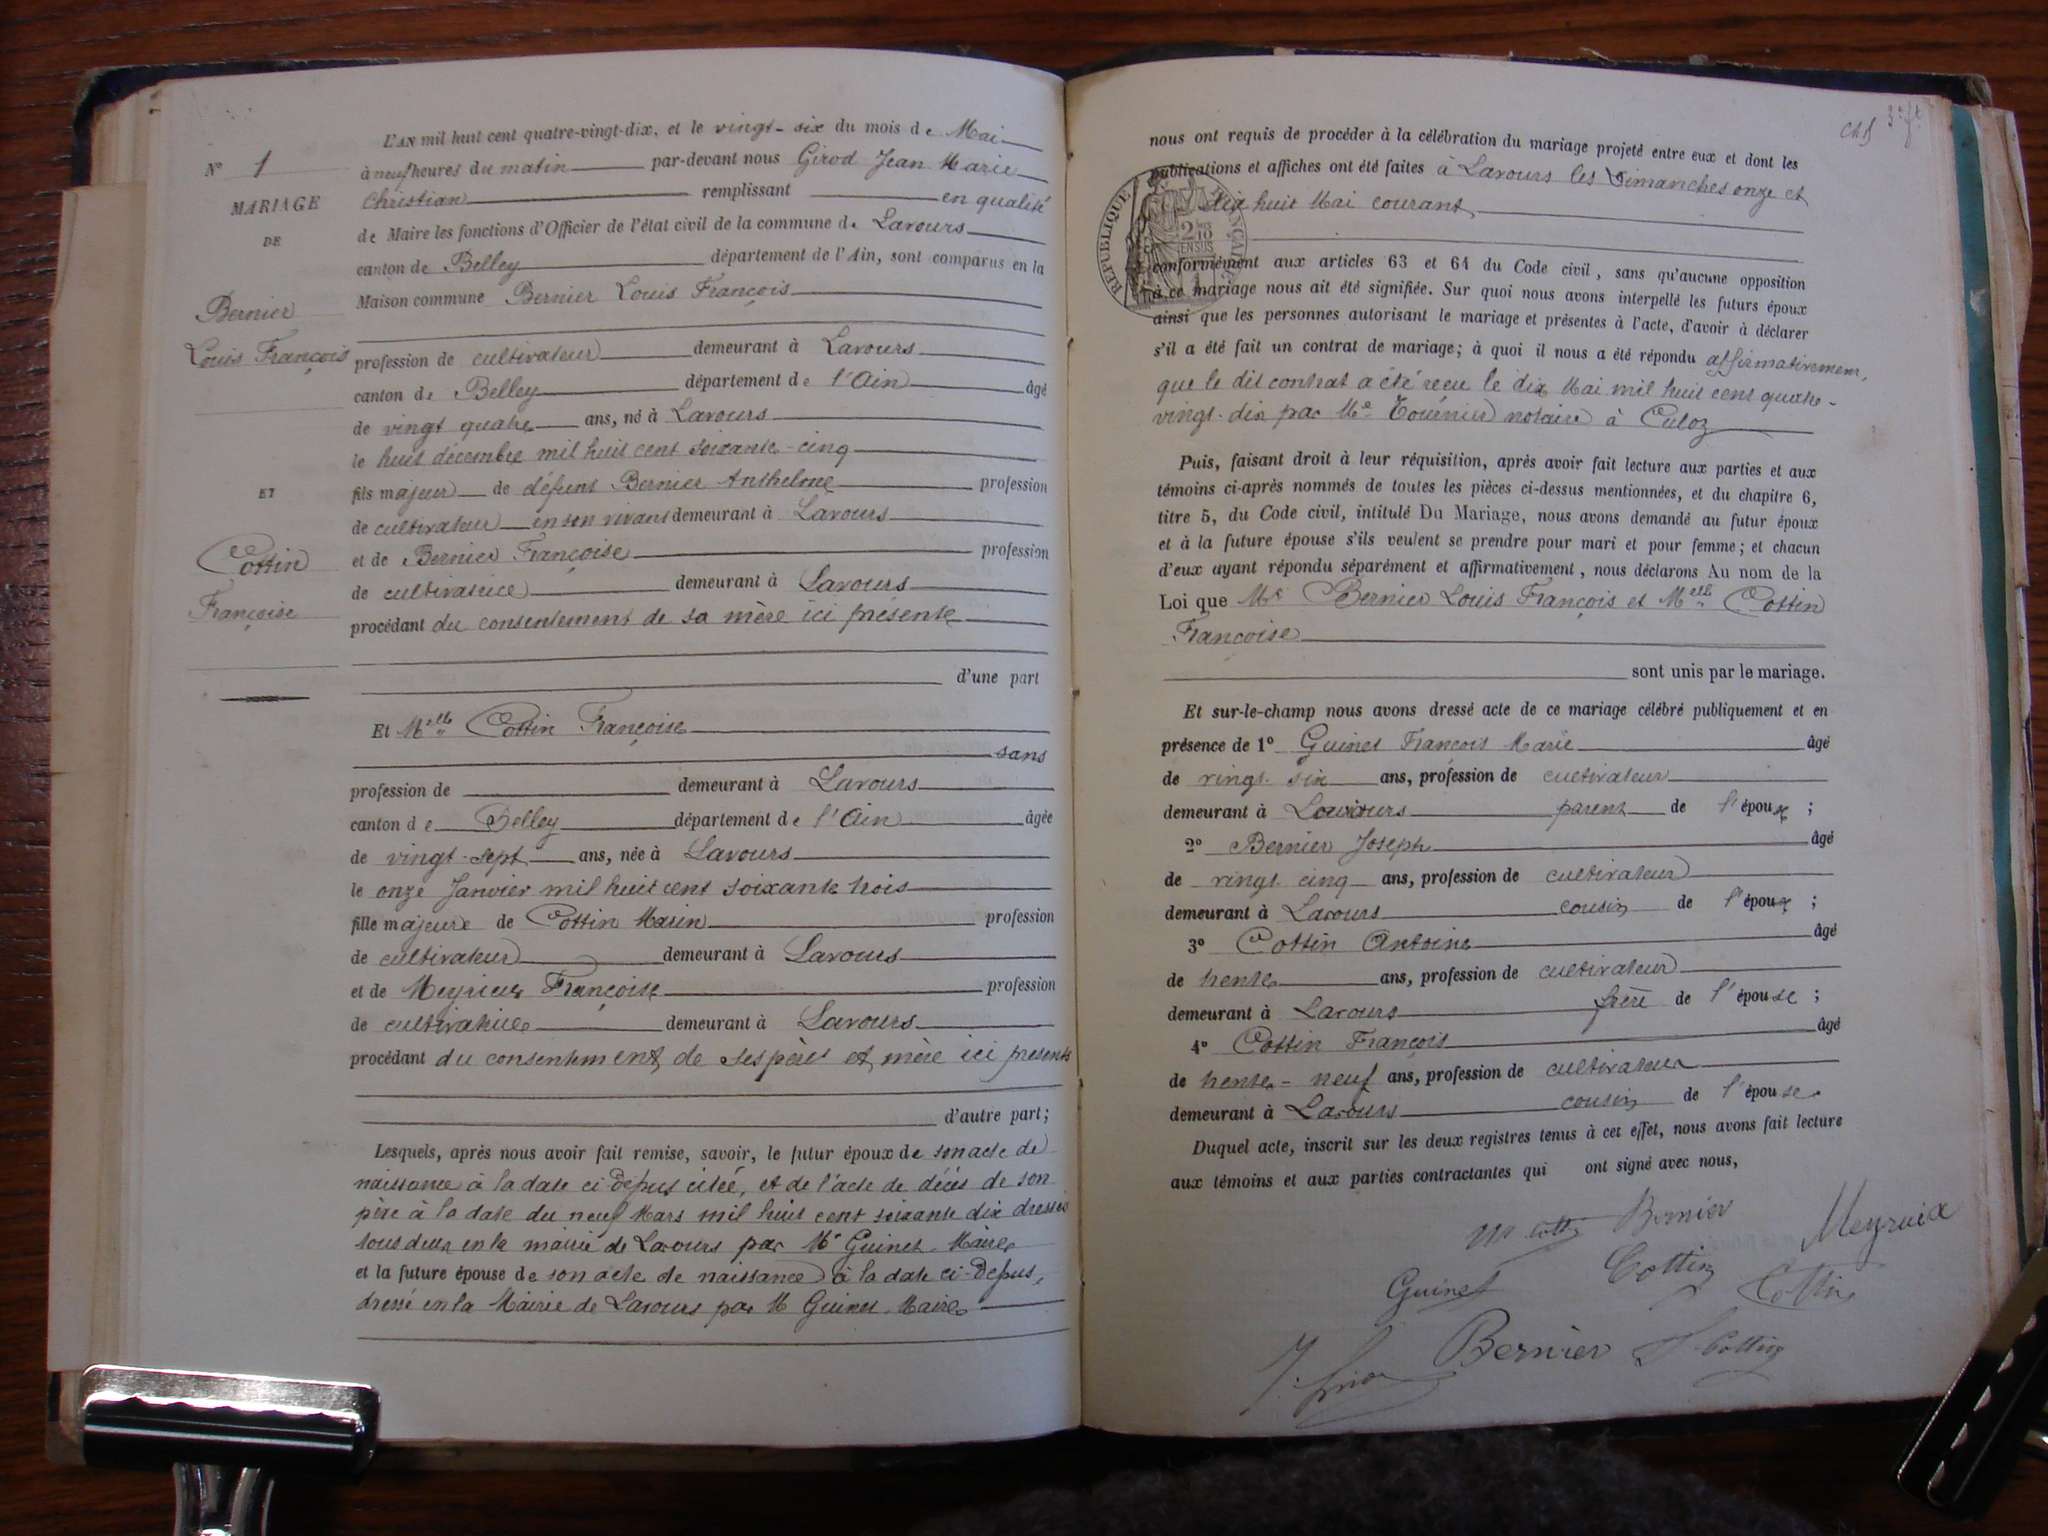 L'AN mil huit cent quatre-vingt-dix, et le vingt-six du mois de Mai
à neuf heures du matin par-devant nous Girod Jean Marie
Christian remplissant en qualité
de Maire les fonctions d'Officier de l'état civil de la commune de Lavours
canton de Belley département de l'Ain, sont comparus en la
Maison commune Bernier Louis François
profession de cultivateur demeurant à Lavours
canton de Belley département de l'Ain âgé
de vingt quatre ans, né à Lavours
le huit décembre mil huit cent soixante-cinq
fils majeur de défunt Bernier Anthelme profession
de cultivateur en son vivant demeurant à Lavours
et de Bernier Françoise profession
de cultivatrice demeurant à Lavours
procédant du consentement de sa mère ici présente
d'une part
Et Melle Cottin Françoise
sans
profession de demeurant à Lavours
canton de Belley département de l'Ain âgée
de vingt-sept ans, née à Lavours
le onze Janvier mil huit cent soixante trois
fille majeure de Cottin Marin profession
de cultivateur demeurant à Lavours
et de Meyrieux Françoise profession
de cultivatrice demeurant à Lavours
procédant du consentement de ses père et mère ici présents
d'autre part;
Lesquels, après nous avoir fait remise, savoir, le futur époux de son acte de
naissance à la date ci-depus citée, et de l'acte de décès de son
père à la date du neuf Mars mil huit cent soixante dix dressés
tous deux en la mairie de Lavours par Mr Guinet Maire
et la future épouse de son acte de naissance à la date ci-depus,
dressé en la Mairie de Lavours par M Guinet Maire
N° 1
MARIAGE
DE
Bernier
Louis François
ET
Cottin
Françoise
nous ont requis de procéder à la célébration du mariage projeté entre eux et dont les
publications et affiches ont été faites à Lavours les Dimanches onze et
dix huit Mai courant
RÉPUBLIQUE FRANÇAISE
2/10 EN SUS
conformément aux articles 63 et 64 du Code civil, sans qu'aucune opposition
à ce mariage nous ait été signifiée. Sur quoi nous avons interpellé les futurs époux
ainsi que les personnes autorisant le mariage et présentes à l'acte, d'avoir à déclarer
s'il a été fait un contrat de mariage; à quoi il nous a été répondu affirmativement,
que le dit contrat a été recu le dix Mai mil huit cent quatre-
vingt-dix par Me Tournier notaire à Culoz
Puis, faisant droit à leur réquisition, après avoir fait lecture aux parties et aux
témoins ci-après nommés de toutes les pièces ci-dessus mentionnées, et du chapitre 6,
titre 5, du Code civil, intitulé Du Mariage, nous avons demandé au futur époux
et à la future épouse s'ils veulent se prendre pour mari et pour femme; et chacun
d'eux ayant répondu séparément et affirmativement, nous déclarons Au nom de la
Loi que Mr Bernier Louis François et Melle Cottin
Françoise
sont unis par le mariage.
Et sur-le-champ nous avons dressé acte de ce mariage célébré publiquement et en
présence de 1° Guinet François Marie âgé
de vingt six ans, profession de cultivateur
demeurant à Lavours parent de l'époux;
2° Bernier Joseph âgé
de vingt cinq ans, profession de cultivateur
demeurant à Lavours cousin de l'époux;
3° Cottin Antoine âgé
de trente ans, profession de cultivateur
demeurant à Lavours frère de l'épouse;
4° Cottin François âgé
de trente-neuf ans, profession de cultivateur
demeurant à Lavours cousin de l'épouse
Duquel acte, inscrit sur les deux registres tenus à cet effet, nous avons fait lecture
aux témoins et aux parties contractantes qui ont signé avec nous,
Bernier Meyrieux
Guinet Cottin Cottin
Bernier Cottin